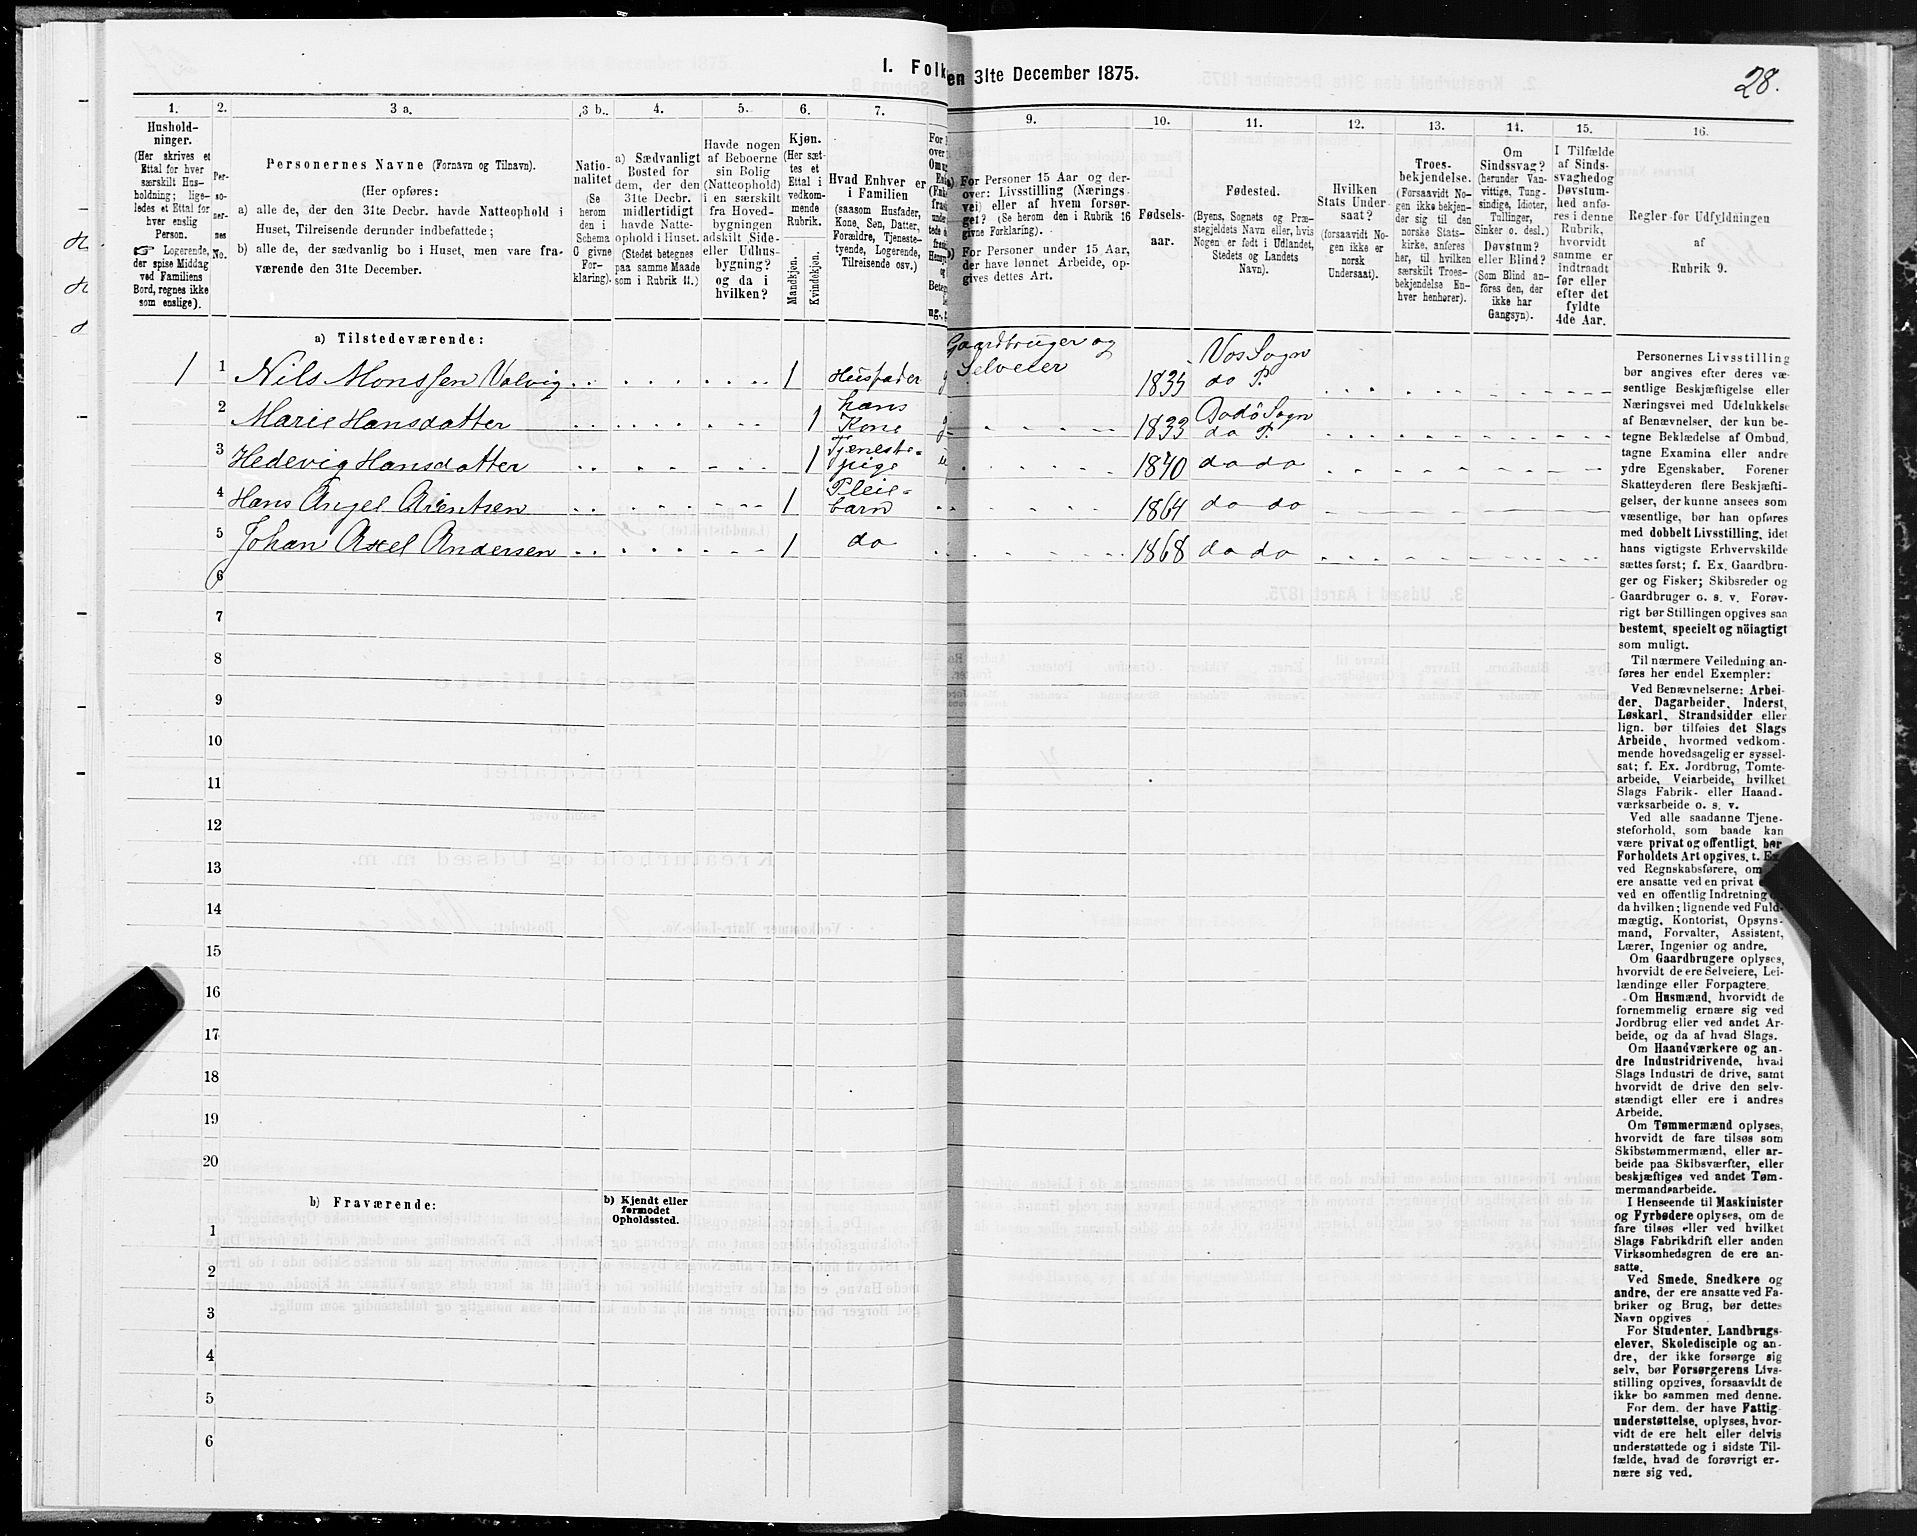 I. Folk en 31te December 1875.
28.
1. 2. 3 a. 3 b. 4. 5. 6. 7.
9. 10. 11. 12. 13. 14. 15. 16.
Hushold-
ninger.
(Her skrives et
Ettal for hver
særskilt Hus-
holdning; lige-
ledes et Ettal for
hver enslig
Person.
☞ Logerende,
der spise Middag
ved Familiens
Bord, regnes ikke
som enslige).
Per-
so-
ner-
nes
No.
Personernes Navne (Fornavn og Tilnavn).
(Her opføres:
a) alle de, der den 31te Decbr. havde Natteophold i
Huset, Tilreisende derunder indbefattede;
b) alle de, der sædvanlig bo i Huset, men vare fra-
værende den 31te December.
Natio-
nalitet
(Se
herom
den i
Schema
G givne
For-
klaring).
a) Sædvanligt
Bosted for
dem, der den
31te Decbr.
midlertidigt
havde Natte-
ophold i Huset.
(Stedet betegnes
paa samme Maade
som i Rubrik 11.)
Havde nogen
af Beboerne
sin Bolig
(Natteophold)
i en særskilt
fra Hoved-
bygningen
adskilt Side-
eller Udhus-
bygning?
og da i
hvilken?
Kjøn.
(Her sæt-
tes et
Ettal i
vedkom-
mende
Rubrik.
Mandkjøn.
Kvindekjøn.
Hvad Enhver er
i Familien
(saasom Husfader,
Kone, Søn, Datter,
Forældre, Tjeneste-
tyende, Logerende,
Tilreisende osv.)
a) For Personer 15 Aar og der-
over: Livsstilling (Nærings-
vei) eller af hvem forsør-
get? (Se herom den i Rubrik 16
givne Forklaring).
b) For Personer under 15 Aar,
der have lønnet Arbeide, op-
gives dettes Art.
Fødsels-
aar.
Fødested.
(Byens, Sognets og Præ-
stegjeldets Navn eller, hvis
Nogen er født i Udlandet,
Stedets og Landets
Navn).
Hvilken
Stats Under-
saat?
(forsaavidt No-
gen ikke er
norsk
Undersaat).
Troes-
bekjendelse.
(Forsaavidt No-
gen ikke bekjen-
der sig til den
norske Stats-
kirke, anføres
her, til hvilken
særskilt Troes-
bekjendelse En-
hver henhører).
Om
Sindssvag?
(herunder Van-
vittige, Tung-
sindige, Idioter,
Tullinger,
Sinker o. desl.)
Døvstum?
eller Blind?
(Som Blind an-
føres den, der
ikke har
Gangsyn).
I Tilfælde
af Sinds-
svaghed og
Døvstum-
hed anfø-
res i denne
Rubrik,
hvorvidt
samme er
indtraadt
før eller
efter det
fyldte
4de Aar.
Regler for Udfyldningen
af
Rubrik 9.
a) Tilstedeværende:
1 1 Nils Monssen Valvig 1 Husfader g Gaardbruger og Selveier 1835 Vos Sogn do P.
2 Marie Hansdatter 1 hans Kone g 1833 Bodö Sogn do P.
3 Hedevig Hansdatter 1 Tjeneste- pige u 1840 do do
4 Hans Angel Arentsen 1 Pleie- barn 1864 do do
5 Johan Axel Andersen 1 do 1868 do do
6
7
8
9
10
11
12
13
14
15
16
17
18
19
20
b) Fraværende:
b) Kjendt eller
formodet
Opholdssted.
1
2
3
4
5
6
Personernes Livsstilling
bør angives efter deres væ-
sentlige Beskjæftigelse eller
Næringsvei med Udelukkelse
af Benævnelser, der kun be-
tegne Beklædelse af Ombud,
tagne Examina eller andre
ydre Egenskaber. Forener
Skatteyderen flere Beskjæfti-
gelser, der kunne ansees som
væsentlige, bør han opføres
med dobbelt Livsstilling, idet
hans vigtigste Erhvervskilde
sættes først; f. Ex. Gaardbru-
ger og Fisker; Skibsreder og
Gaardbruger o. s. v. Forøv-
rigt bør Stillingen opgives saa
bestemt, specielt og nöiagtigt
som muligt.
Til nærmere Veiledning an-
føres her endel Exempler:
Ved Benævnelserne: Arbei-
der, Dagarbeider, Inderst,
Løskarl, Strandsidder eller
lign. bør tilføies det Slags
Arbeide, hvormed vedkom-
mende hovedsagelig er syssel-
sat; f. Ex. Jordbrug, Tomte-
arbeide, Veiarbeide, hvilket
Slags Fabrik- eller Haand-
værksarbeide o. s. v.
Ved alle saadanne Tjene-
steforhold, som baade kan
være privat og offentligt, bør
Forholdets Art opgives, t. Ex.
ved Regnskabsførere, om
ere ansatte ved en privat
ved en offentlig Indretning
da hvilken; lignende ved Fuld-
mægtig, Kontorist, Opsyns-
mand, Forvalter, Assistent,
Lærer, Ingeniør og andre.
Om Gaardbrugere oplyses,
hvorvidt de ere Selveiere, Lei-
lændinge eller Forpagtere.
Om Husmænd, hvorvidt de
fornemmelig ernære sig ved
Jordbrug eller ved andet Ar-
beide, og da af hvad Slags.
Om Haandværkere og an-
dre Industridrivende, hvad
Slags Industri de drive, samt
hvorvidt de drive den selv-
stændigt eller ere i andres
Arbeide.
Om Tømmermænd oplyses,
hvorvidt de fare tilsøs som
Skibstømmermænd, eller ar-
beide paa Skibsværfter, eller
beskjæftiges ved andet Tøm-
mermandsarbeide.
I Henseende til Maskinister
og Fyrbødere oplyses, om de
fare tilsøs eller ved hvilket
Slags Fabrikdrift eller anden
Virksomhedsgren de ere an-
satte.
Ved Smede, Snedkere og
andre, der ere ansatte ved Fa-
briker og Brug, bør dettes
Navn opgives
For Studenter, Landbrugs-
elever, Skoledisciple og an-
dre, der ikke forsørge sig
selv, bør Forsørgerens Livs-
stilling opgives, forsaavidt de
ikke bo sammen med denne.
For dem, der have Fattig-
understøttelse, oplyses, hvor-
vidt de ere helt eller delvis
understøttede og i sidste Til-
fælde, hvad de forøvrigt er-
nære sig ved.